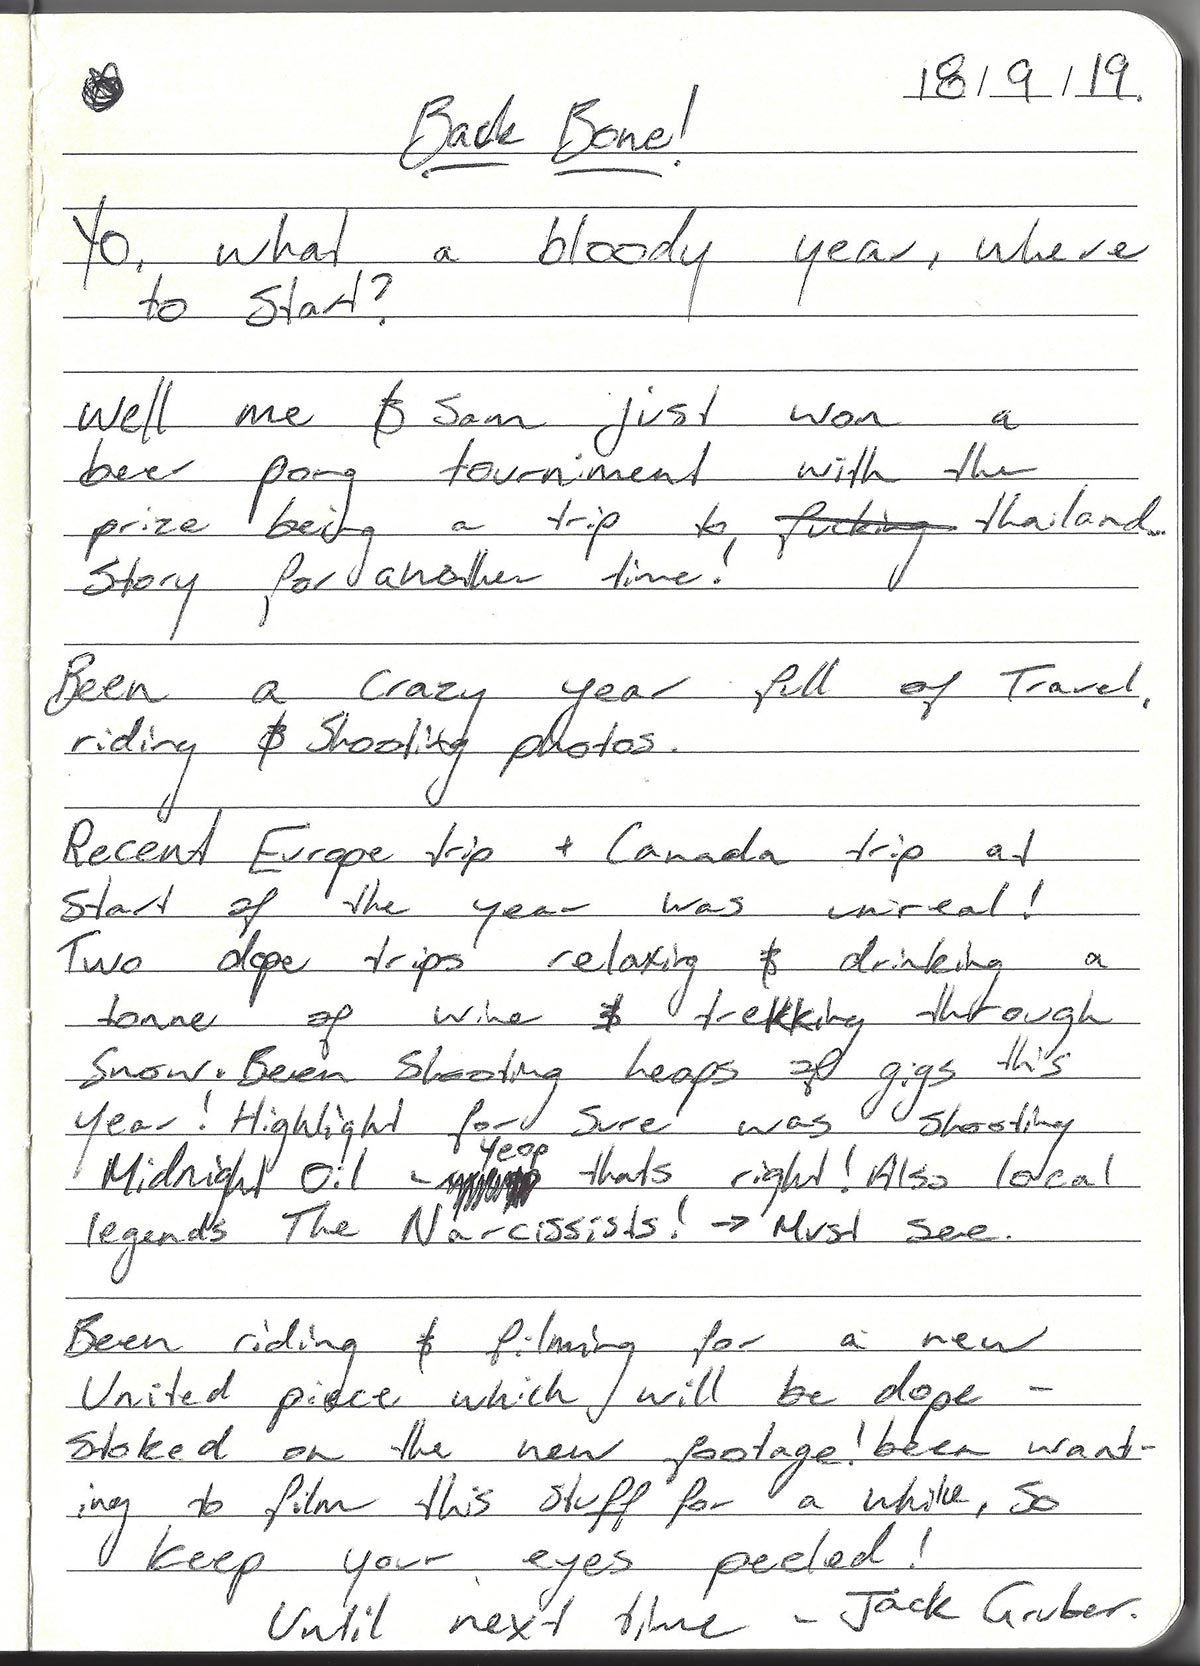 18/9/19.
Back Bone!
Yo, what a bloody year, where
to start?
Well me & Sam just won a
beer pong tourniment with the
prize being a trip to, fucking thailand..
Story for another time!
Been a crazy year full of Travel,
riding & Shooting photos.
Recent Europe trip + Canada trip at
start of the year was unreal!
Two dope trips relaxing & drinking a
tonne of wine & trekking through
Snow. Been Shooting heaps of gigs this
year! Highlight for Sure was shooting
Yeop
Midnight Oil - thats right! Also local
legends The Narcissists! → Must see.
Been riding & filming for a new
United piece which will be dope -
Stoked on the new footage! been want-
ing to film this stuff for a while, So
keep your eyes peeled!
Until next time - Jack Gruber.